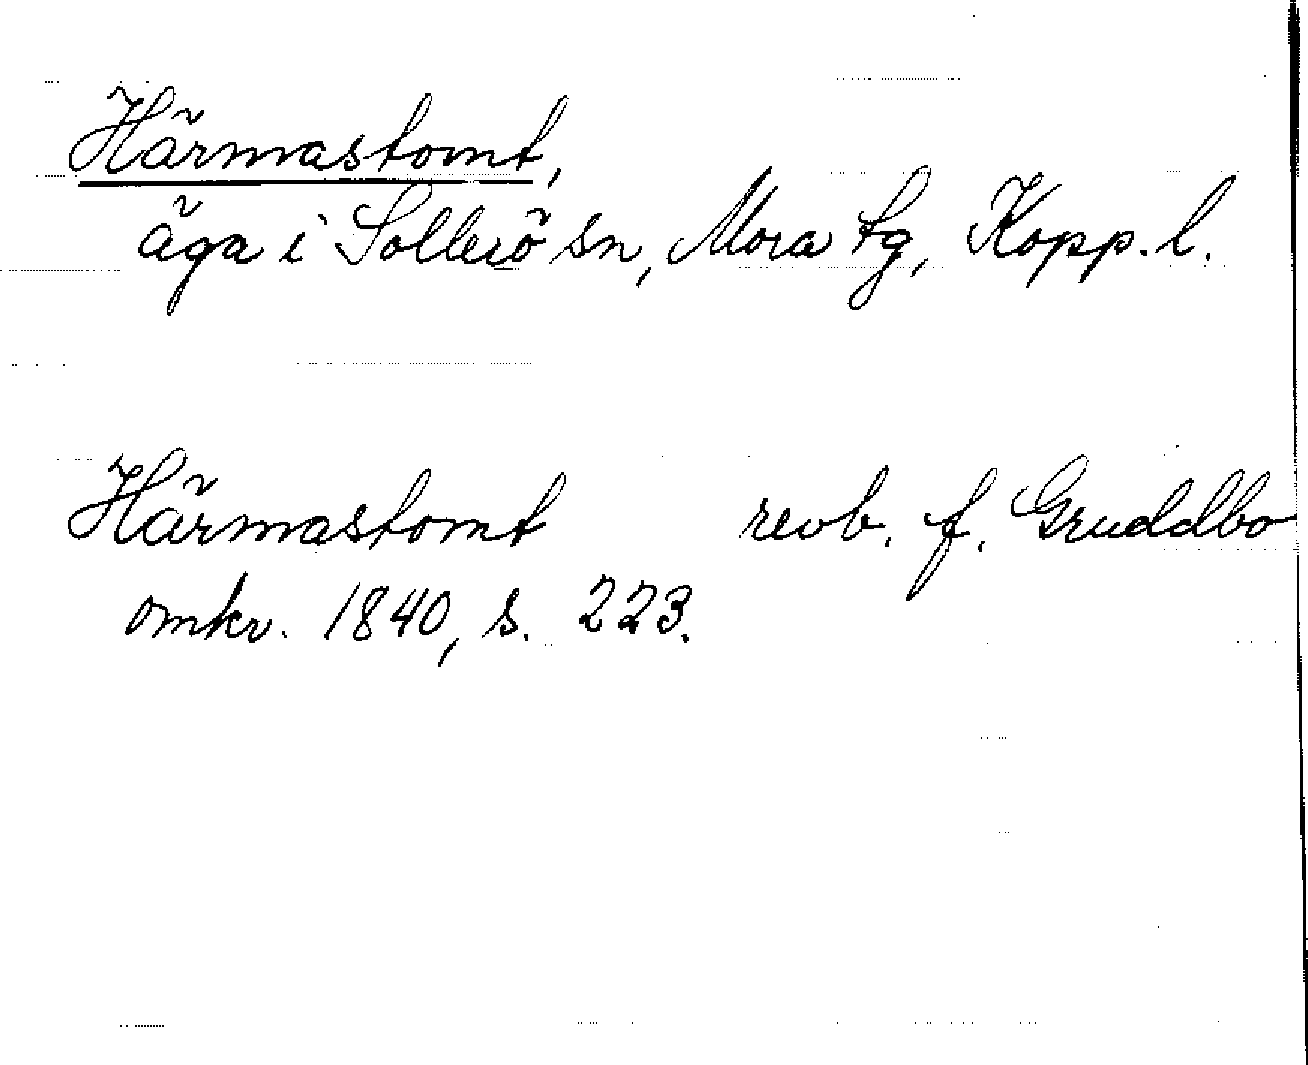 Härmastomt,
äga i Sollerö sn, Mora tg, Kopp. l.
Härmastomt revb. f. Gruddbo
omkr. 1840, s. 223.